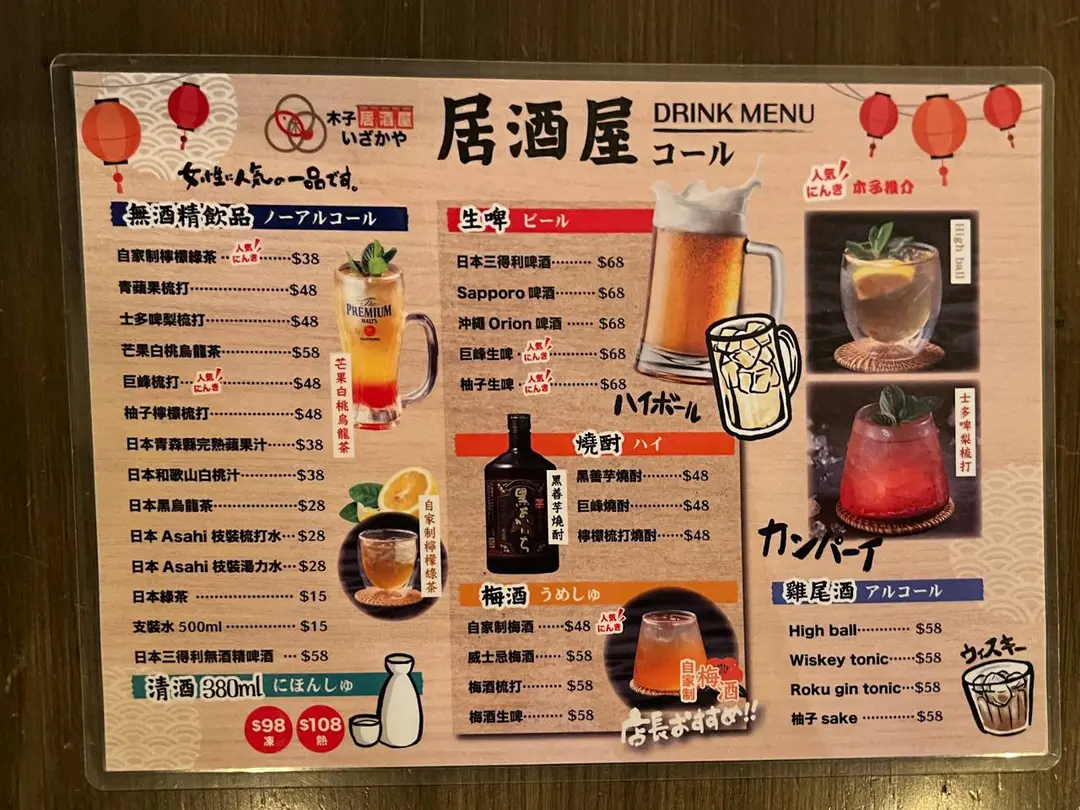 木子居酒屋
いざかや
居酒屋
DRINK MENU
コール
女性に人気の一品です。
無酒精飲品 ノーアルコール
自家制檸檬綠茶··人気!にんき······$38
青蘋果梳打··············$48
士多啤梨梳打············$48
芒果白桃烏龍茶··········$58
巨峰梳打··人気!にんき·········$48
柚子檸檬梳打············$48
日本青森縣完熟蘋果汁······$38
日本和歌山白桃汁········$38
日本黑烏龍茶············$28
日本 Asahi 枝裝梳打水···$28
日本 Asahi 枝裝湯力水···$28
日本綠茶 ··············$15
支裝水 500ml ···········$15
日本三得利無酒精啤酒 ···$58
The
PREMIUM
MALT'S
芒果白桃烏龍茶
自家制檸檬綠茶
清酒 380ml にほんしゅ
$98
凍
$108
熱
生啤 ビール
日本三得利啤酒········ $68
Sapporo 啤酒········$68
沖繩 Orion 啤酒 ······ $68
巨峰生啤 ·人気!にんき········$68
柚子生啤 ·人気!にんき········$68
ハイボール
燒酎 ハイ
黑善芋燒酎·········$48
巨峰燒酎···········$48
檸檬梳打燒酎······$48
黑善芋燒酎
梅酒 うめしゅ
自家制梅酒 ·····$48 人気!にんき
威士忌梅酒······ $58
梅酒梳打········ $58
梅酒生啤 ········ $58
自家制梅酒
店長おすすめ!!
人気!
にんき
木子推介
High ball
士多啤梨梳打
カンパーイ
雞尾酒 アルコール
High ball··········· $58
Wiskey tonic·····$58
Roku gin tonic···$58
柚子 sake ············$58
ウィスキー